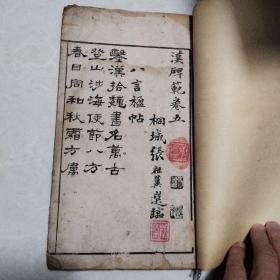 漢碑範卷五
桐城張祖翼選臨
八言楹帖
鑿漢拾魏書名萬古
登山涉海使節八方
春日同和秋霜方厲